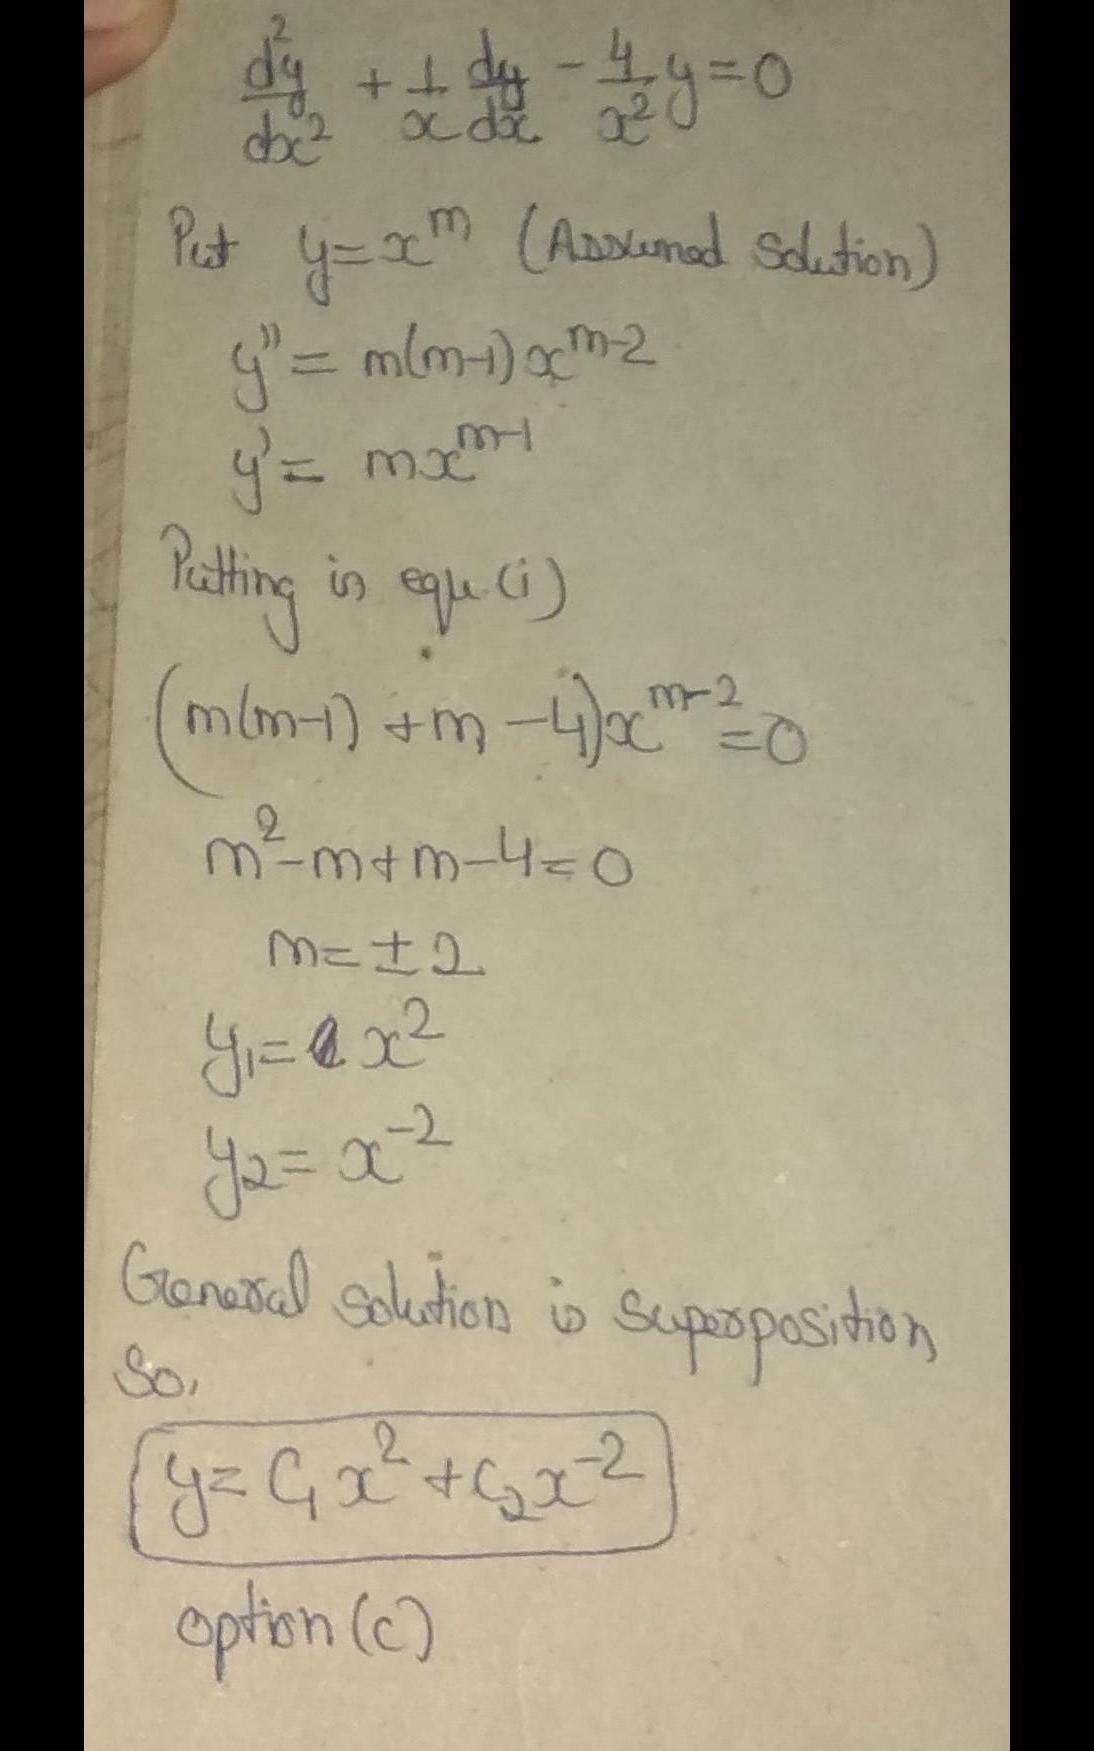 d²y/dx² + 1/x dy/dx - 4/x² y = 0
Put y = x^m (Assumed Solution)
y'' = m(m-1)x^(m-2)
y' = mx^(m-1)
Putting in equ. (i)
(m(m-1) + m - 4)x^(m-2) = 0
m² - m + m - 4 = 0
m = ± 2
y₁ = x²
y₂ = x⁻²
General solution is Superposition
So,
y = C₁x² + C₂x⁻²
option (c)